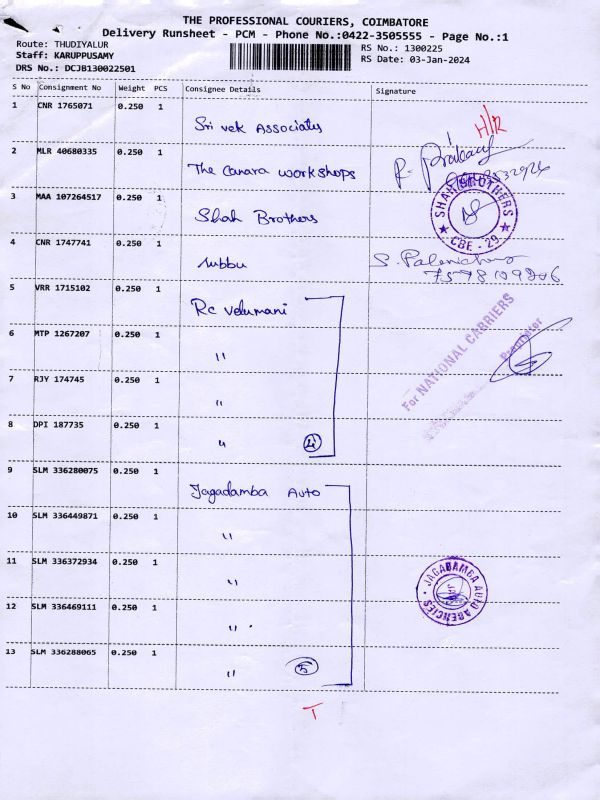 THE PROFESSIONAL COURIERS, COIMBATORE
Delivery Runsheet - PCM - Phone No.:0422-3505555 - Page No.:1
Route: THUDIYALUR
Staff: KARUPPUSAMY
DRS No.: DCJB130022501
RS No.: 1300225
RS Date: 03-Jan-2024
S No Consignment No Weight PCS Consignee Details Signature
1 CNR 1765071 0.250 1 Sri vek Associates
H/R
2 MLR 40680335 0.250 1 The Canara workshops
3 MAA 107264517 0.250 1 Shah Brothers
SHAH BROTHERS
★ CBE - 29 ★
4 CNR 1747741 0.250 1 Subbu
5 VRR 1715102 0.250 1 Rc Velumani
6 MTP 1267207 0.250 1 "
For NATIONAL CARRIERS
Proprietor
7 RJY 174745 0.250 1 "
8 DPI 187735 0.250 1 " 4
9 SLM 336280075 0.250 1 Jagadamba Auto
10 SLM 336449871 0.250 1 "
11 SLM 336372934 0.250 1 "
JAGABAMBA AUTO AGENCIES
12 SLM 336469111 0.250 1 "
13 SLM 336288065 0.250 1 " 5
T